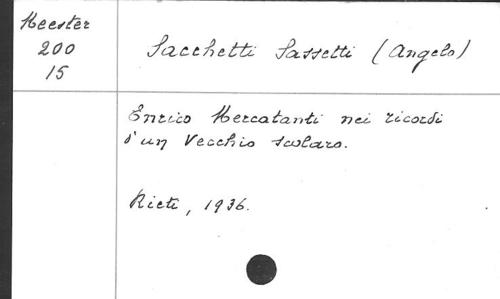 Meester
200
15
Sacchetti Sassetti (Angelo)
Enrico Mercatanti nei ricordi
d'un vecchio scolaro.
Rieti, 1936.